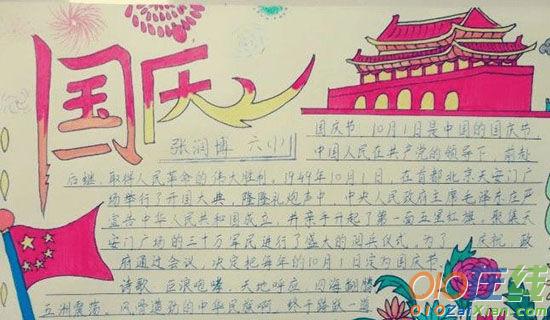 国庆
张润博 六(1)
国庆节，10月1日是中国的国庆节，
中国人民在共产党的领导下，前赴
后继，取得人民革命的伟大胜利，1949年10月1日，在首都北京天安门广
场举行了开国大典，隆隆礼炮声中，中央人民政府主席毛泽东庄严
宣告中华人民共和国成立，并亲手升起了第一面五星红旗，聚集天
安门广场的三十万军民进行了盛大的阅兵仪式，为了 庆祝，政
府通过会议，决定把每年的10月1日定为国庆节。
诗歌，巨浪咆哮，天地呼应，四海翻腾
五洲震荡，风雪 的中华民族啊，终于
在线
ZaiXian.com